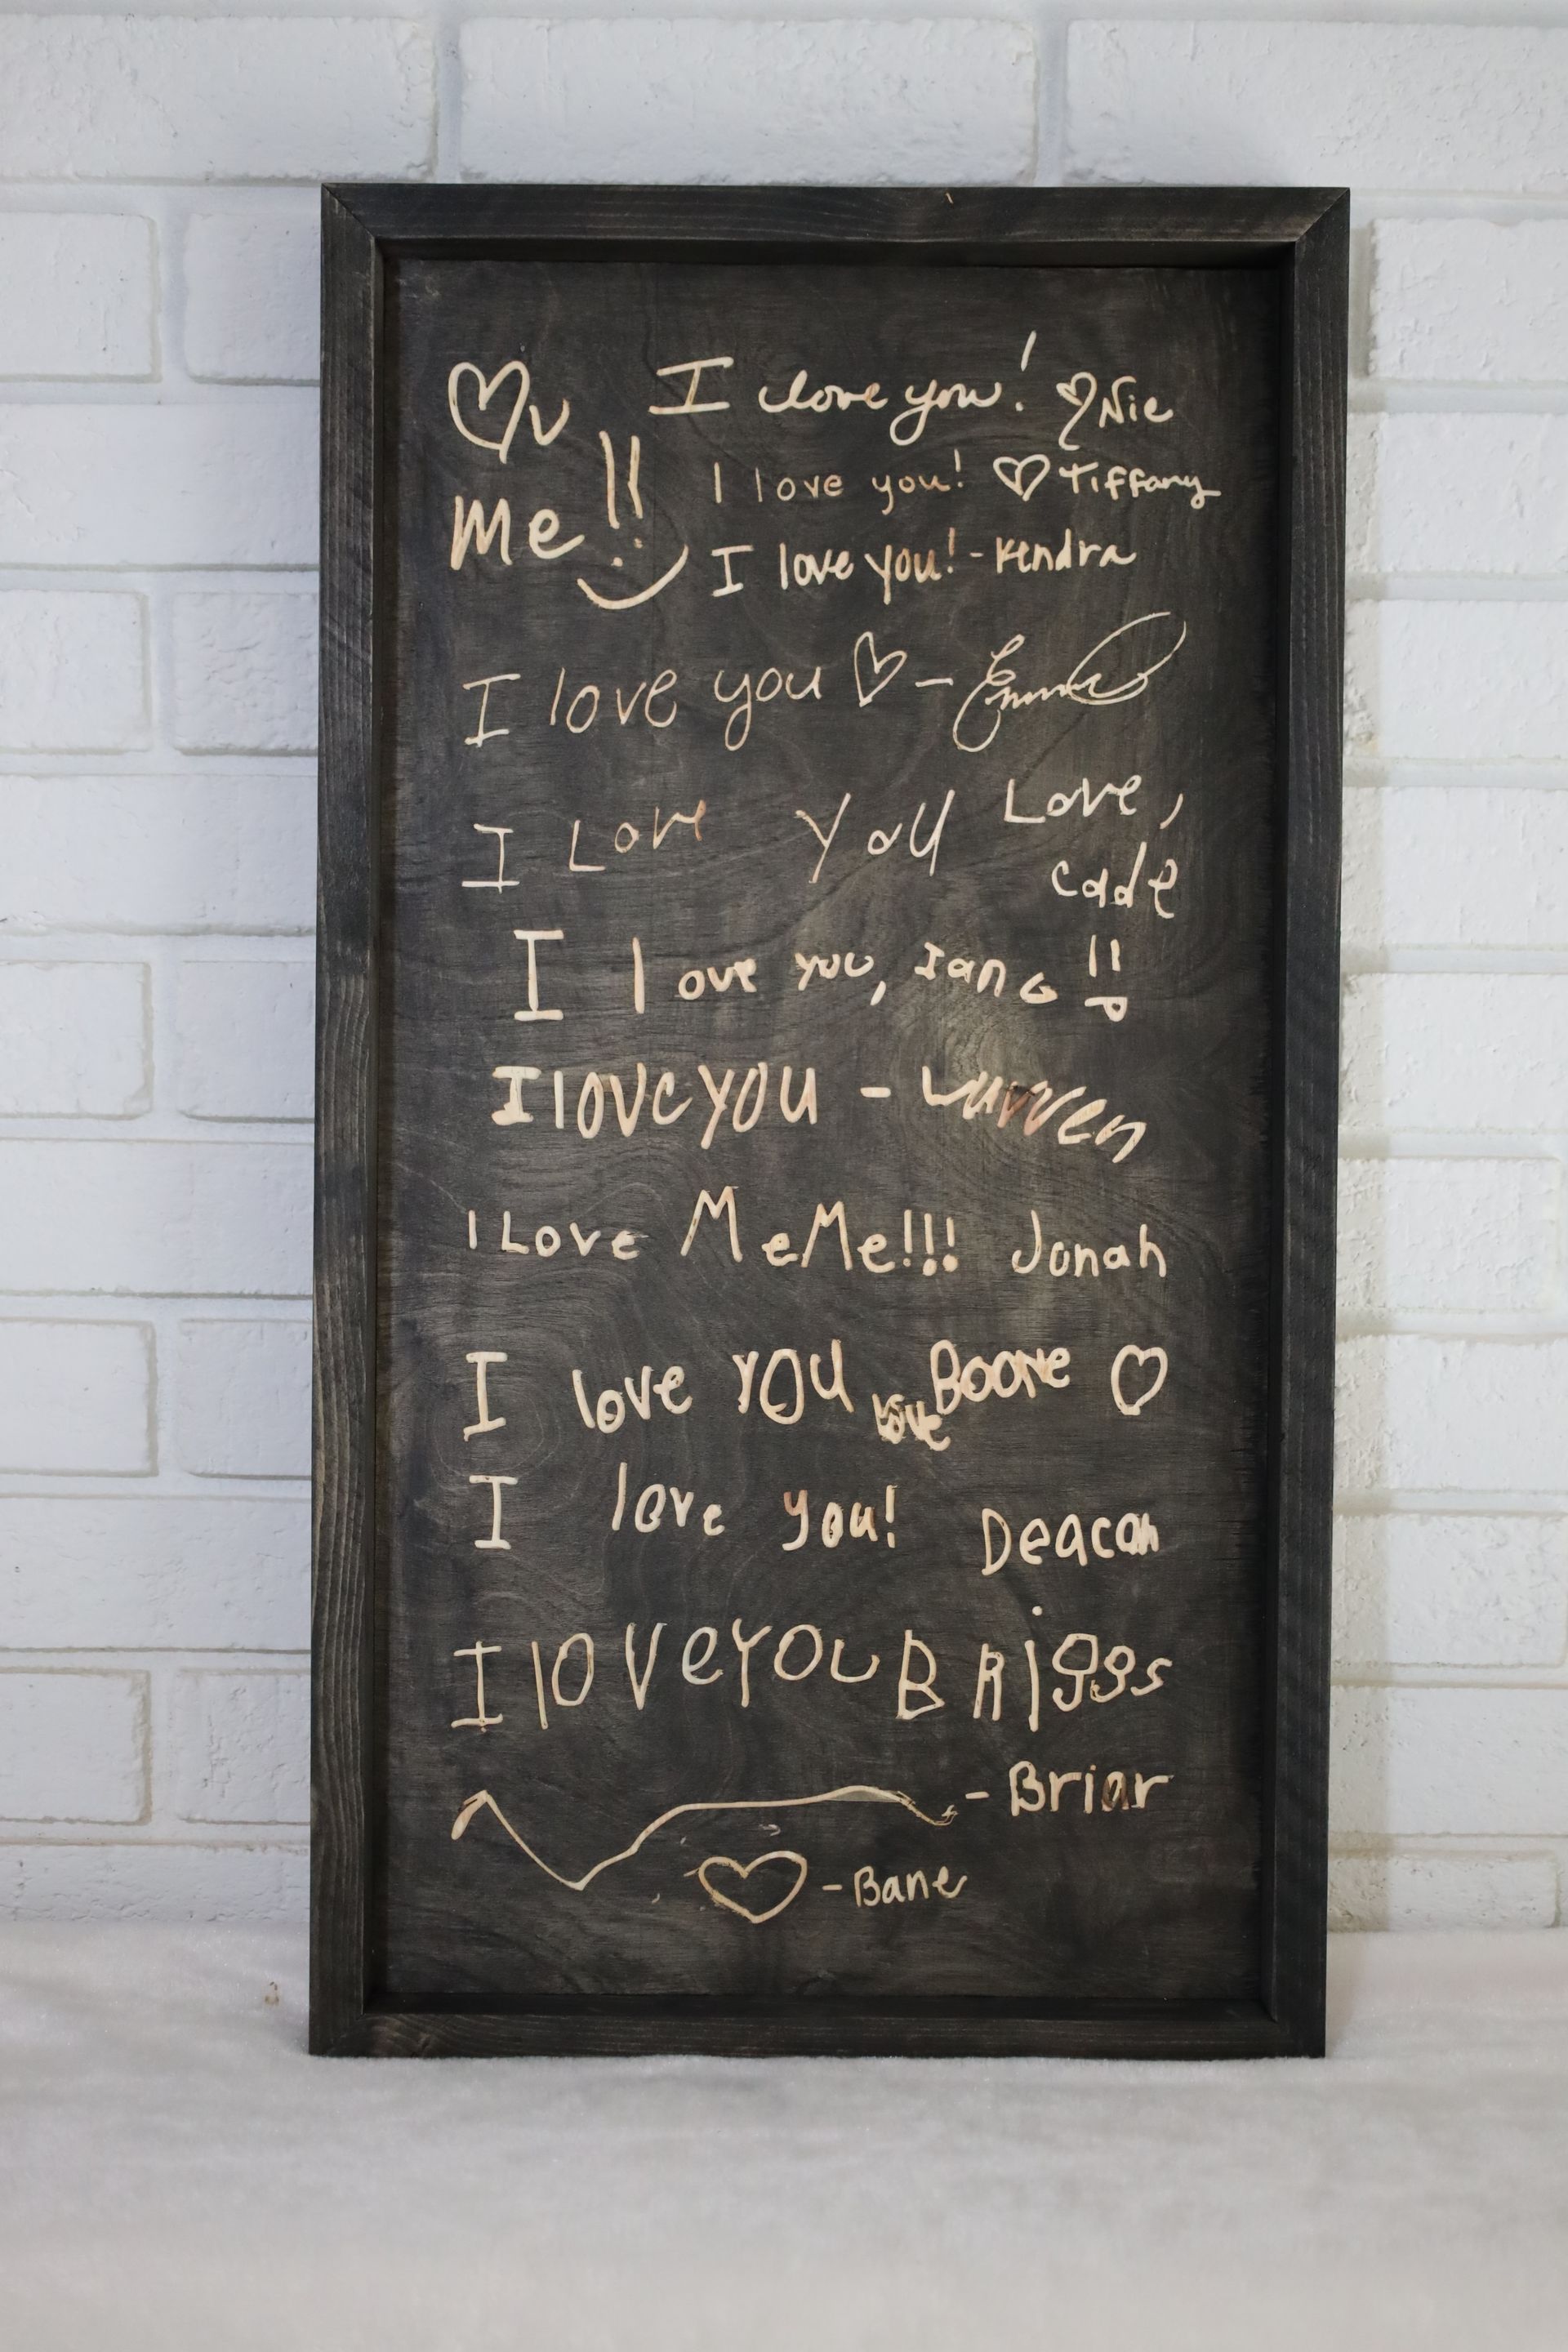 ♡ v
Me!!
I love you! ♡ Nic
I love you! ♡ Tiffany
I love you! - Kendra
I love you ♡ - Emma
I Love you Love,
cade
I love you, Ian G
I love you - Warren
I Love MeMe!!! Jonah
I love you love Boone ♡
I love you! Deacon
I love you BRiggs
- Briar
♡ - Bane